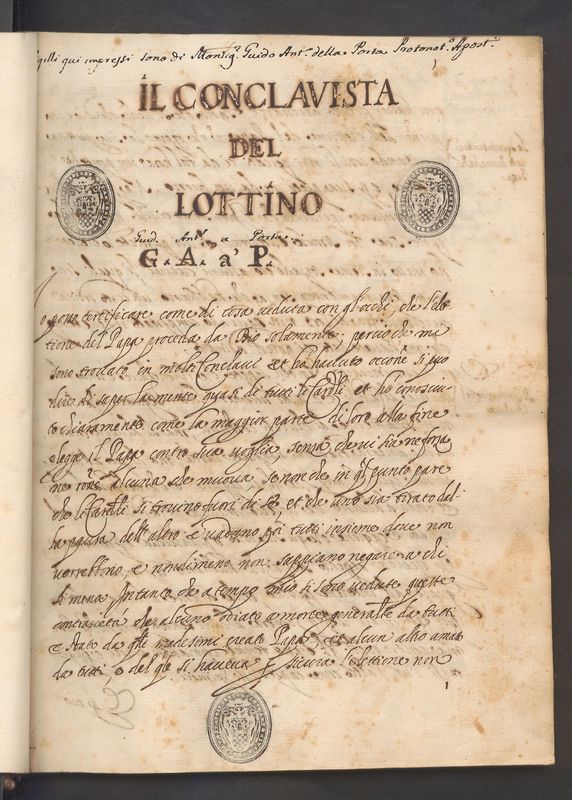 sigilli qui impressi sono di Monsigr. Guido Ant.o della Porta Protonot.o Apost.o
IL CONCLAVISTA
DEL
LOTTINO
Guid. Ant. a Porta
G. A. a' P.
Io posso certificare come di cosa ueduta con gl'occhi, che l'ele-
tione del Papa proceda da Dio solamente, percioche mi
sono trouato in molti Conclaui et ho hauuto occne si può
dire di saper la mente quasi di tutti li Carli et ho conosciu-
to chiaramente come la maggior parte di loro alla fine
elegge il Papa contro sua uoglia, senza che ui sia ne forza
ne alcuna che muoua, se non che in ql punto pare
che li Carli si trouino fuori di se, et che uno sia tirato dal-
la paura dell'altro e uadano poi tutti insieme doue non
uorrebbono, e nondimeno non sappiano negare a chi
li mena, Intanto che a tempo mio si sono uedute queste
contrarietà che alcuno odiato a morte generalte da tutti
è stato da qlli medesimi creato Papa, et alcun altro amato
da tutti, e del qle si haueua p sicura l'elettione non
1